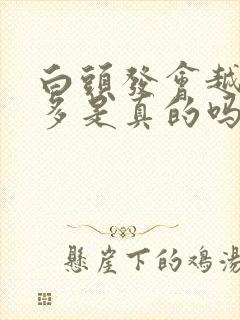 白頭發會越
多是真的吗
懸崖下的鸡湯